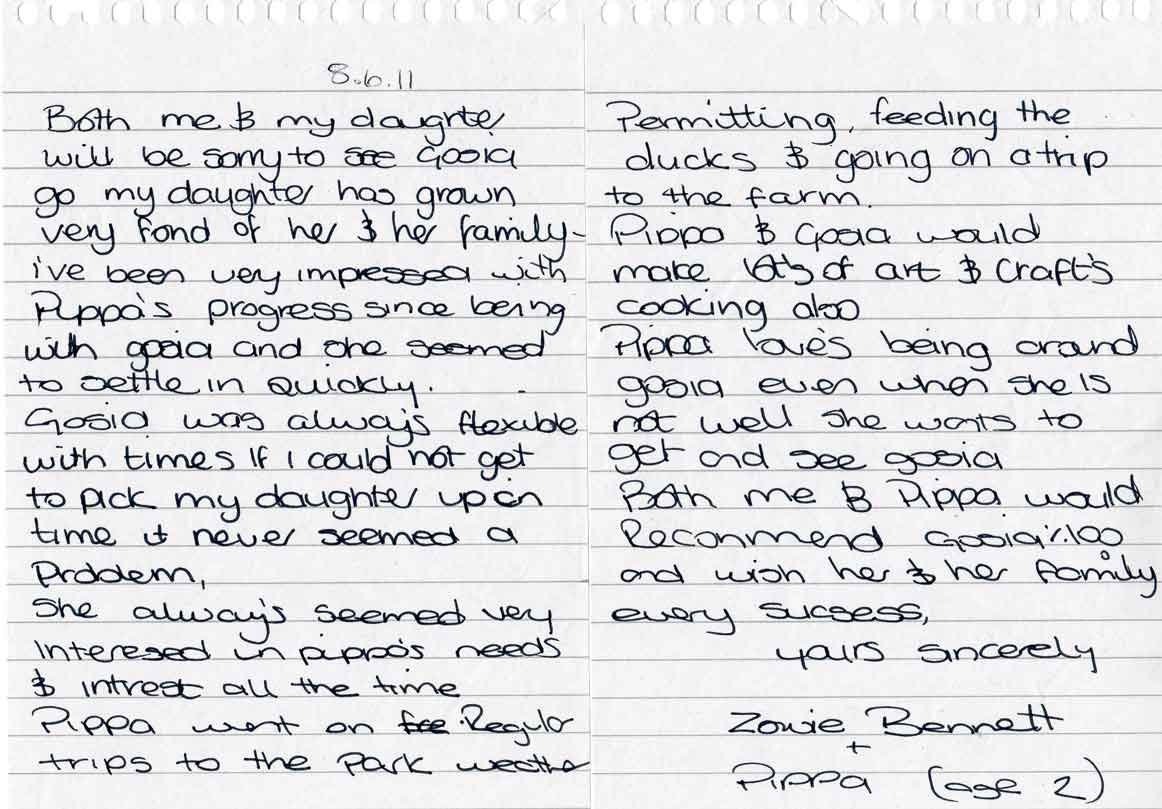 8.6.11
Both me & my daughter
will be sorry to see Gosia
go my daughter has grown
very fond of her & her family-
i've been very impressed with
Pippa's progress since being
with gosia and she seemed
to settle in quickly.
Gosia was always flexible
with times If I could not get
to pick my daughter up on
time it never seemed a
Problem,
She alway's seemed very
Interesed in pippa's needs
& intrest all the time
Pippa went on Regular
trips to the Park weather
Permitting, feeding the
ducks & going on a trip
to the farm.
Pippa & Gosia would
make lot's of art & Craft's
cooking also
Pippa love's being around
gosia even when she is
not well she wants to
get and see gosia
Both me & Pippa would
Reconmend Gosia %100
and wish her & her family
every sucsess,
yours sincerely
Zowie Bennett
+
Pippa (age 2)